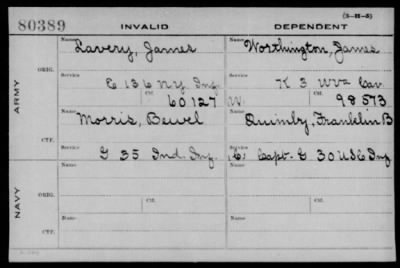 (3-H-5)
80389 INVALID DEPENDENT
Name Name
Lavery, James Worthington, James
ORIG. Service Service
E 136 N.Y. Inf. K 3 W Va Cav.
Ctf. Ctf.
60127 W. 98573
ARMY
Name Name
Morris, Bewel Quimby, Franklin B
CTF. Service Service
G 35 Ind. Inf. C. Capt. G 30 U.S.C Inf
Name Name
ORIG. Ctf. Ctf.
Service Service
NAVY
Name Name
CTF.
Service Service